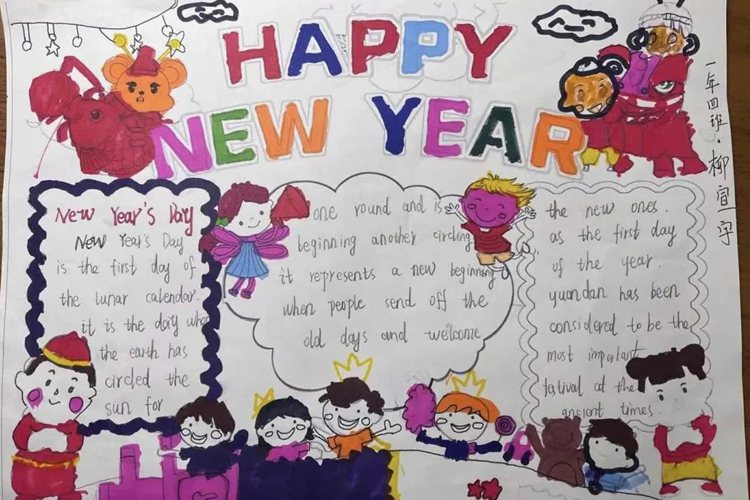 HAPPY
NEW YEAR
一年四班·柳宣宇
New Year's Day
New Year's Day
is the first day of
the lunar calendar.
it is the daiy whe
the earth has
circled the
sun for
one round and is
beginning another circling
it represents a new beginning
when people send off the
old days and welcome
the new ones.
as the first day
of the year.
yuandan has been
considered to be the
most important
festival od the
ancient times.